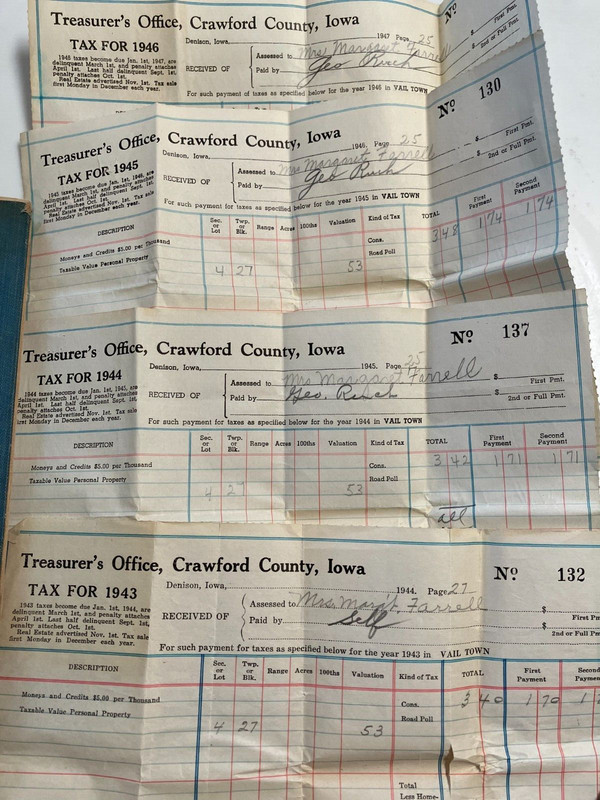 Treasurer's Office, Crawford County, Iowa
No
TAX FOR 1946
Denison, Iowa, 1947 Page 25
1945 taxes become due Jan. 1st, 1947, are
delinquent March 1st, and penalty attaches
April 1st. Last half delinquent Sept. 1st,
penalty attaches Oct. 1st.
Real Estate advertised Nov. 1st. Tax sale
first Monday in December each year.
RECEIVED OF
Assessed to Mrs Margaret Farrell
Paid by Geo
$ First Pmt.
$ 2nd or Full Pmt.
For such payment of taxes as specified below for the year 1946 in VAIL TOWN
Treasurer's Office, Crawford County, Iowa
No 130
TAX FOR 1945
Denison, Iowa, 1946, Page 25
1945 taxes become due Jan. 1st, 1946, are
delinquent March 1st, and penalty attaches
April 1st. Last half delinquent Sept. 1st,
penalty attaches Oct. 1st.
Real Estate advertised Nov. 1st. Tax sale
first Monday in December each year.
RECEIVED OF
Assessed to Mrs Margaret Farrell
Paid by Geo
$ First Pmt.
$ 2nd or Full Pmt.
For such payment of taxes as specified below for the year 1945 in VAIL TOWN
DESCRIPTION Sec. or Lot Twp. or Blk. Range Acres 100ths Valuation Kind of Tax TOTAL First Payment Second Payment
Moneys and Credits $5.00 per Thousand Cons. 3 48 1 74 1 74
Taxable Value Personal Property 4 27 53 Road Poll
Treasurer's Office, Crawford County, Iowa
No 137
TAX FOR 1944
Denison, Iowa, 1945. Page 25
1944 taxes become due Jan. 1st, 1945, are
delinquent March 1st, and penalty attaches
April 1st. Last half delinquent Sept. 1st,
penalty attaches Oct. 1st.
Real Estate advertised Nov. 1st. Tax sale
first Monday in December each year.
RECEIVED OF
Assessed to Mrs Margaret Farrell
Paid by Geo.
$ First Pmt.
$ 2nd or Full Pmt.
For such payment of taxes as specified below for the year 1944 in VAIL TOWN
DESCRIPTION Sec. or Lot Twp. or Blk. Range Acres 100ths Valuation Kind of Tax TOTAL First Payment Second Payment
Moneys and Credits $5.00 per Thousand Cons. 3 42 1 71 1 71
Taxable Value Personal Property 4 27 53 Road Poll
Treasurer's Office, Crawford County, Iowa
No 132
TAX FOR 1943
Denison, Iowa, 1944. Page 27
1943 taxes become due Jan. 1st, 1944, are
delinquent March 1st, and penalty attaches
April 1st. Last half delinquent Sept. 1st,
penalty attaches Oct. 1st.
Real Estate advertised Nov. 1st. Tax sale
first Monday in December each year.
RECEIVED OF
Assessed to Mrs. Margt. Farrell
Paid by Self
$ First Pm
$ 2nd or Full Pm
For such payment of taxes as specified below for the year 1943 in VAIL TOWN
DESCRIPTION Sec. or Lot Twp. or Blk. Range Acres 100ths Valuation Kind of Tax TOTAL First Payment Second Paymen
Moneys and Credits $5.00 per Thousand Cons. 3 40 1 70 1
Taxable Value Personal Property 4 27 53 Road Poll
Total
Less Home-